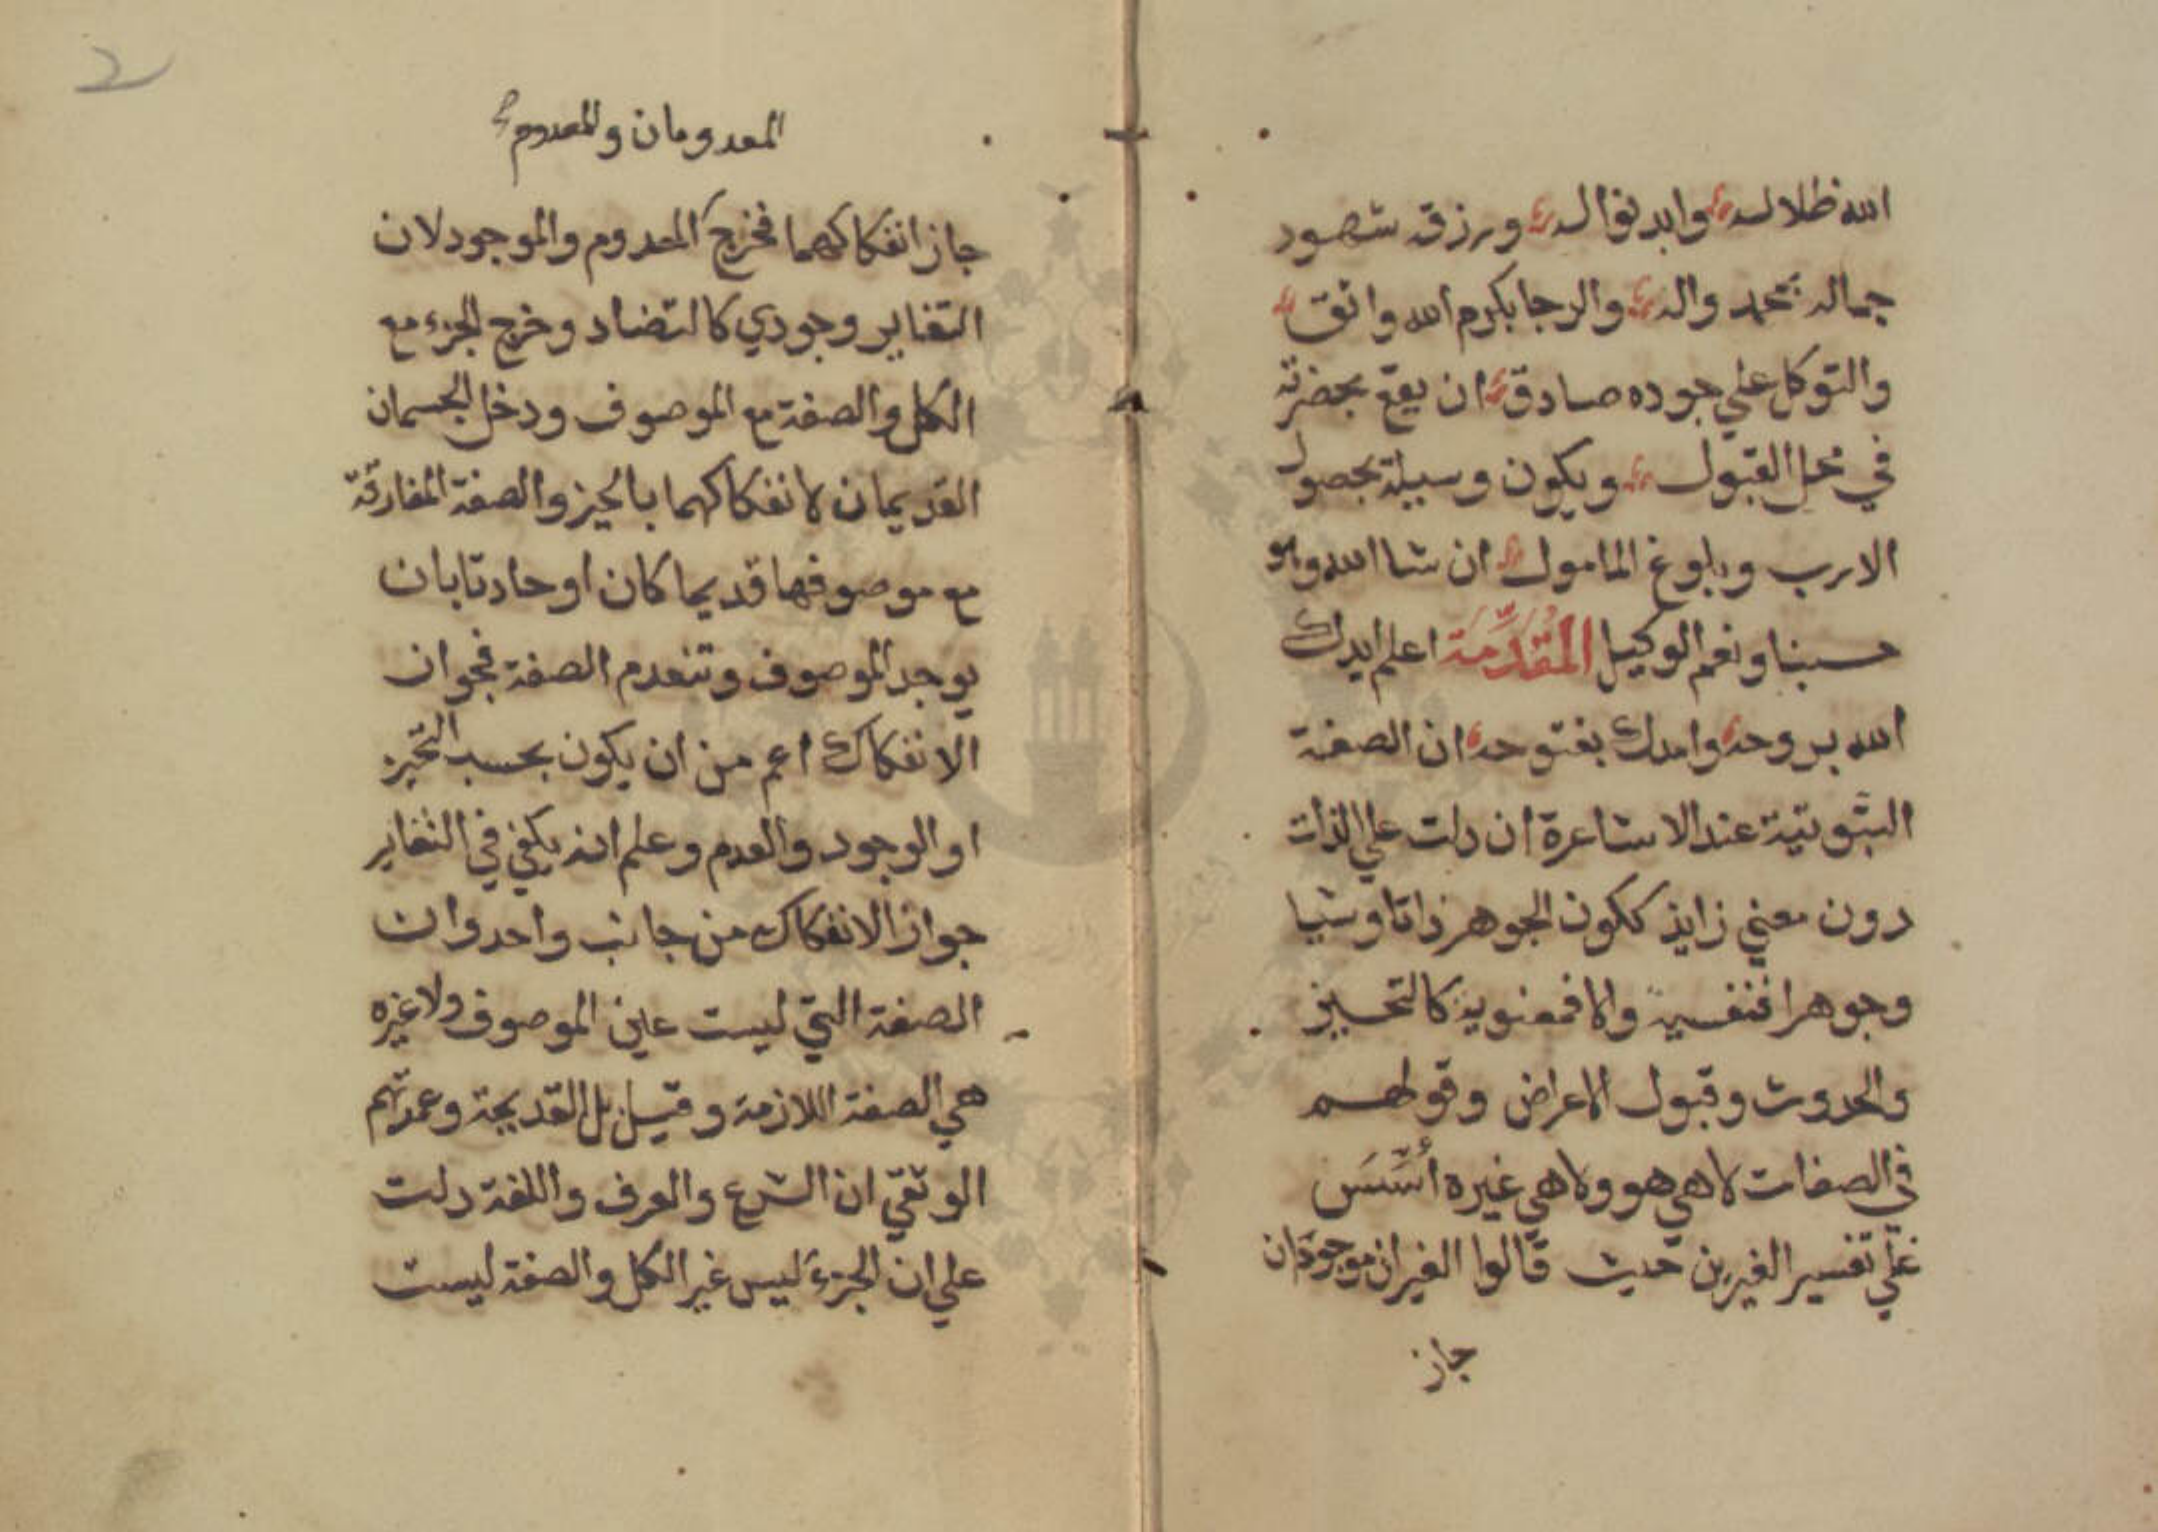 الله ظلاله وابد نواله ورزقه شهود
جماله بمحمد واله والرجا بكرم الله واثق
والتوكل علي جوده صادق ان يقع بحضرته
في محل القبول ويكون وسيلة بحصول
الارب وبلوغ المامول ان شا الله وهو
حسبنا ونعم الوكيل المُقَدِّمَة اعلم ايدك
الله بروحه وامدك بفتوحه ان الصفة
الثبوتية عند الاشاعرة ان دلت علي الذات
دون معني زايد ككون الجوهر ذاتا وشيا
وجوهرا فنفسية والا فمعنوية كالتحيز
والحدوث وقبول الاعراض وقولهم
في الصفات لا هي هو ولا هي غيره أسّسَ
علي تفسير الغيرين حيث قالوا الغيران موجودان
جاز
المعدومان والمعدوم
جاز انفكاكهما فخرج المعدوم والموجود لان
التغاير وجودي كالتضاد وخرج الجزء مع
الكل والصفة مع الموصوف ودخل الجسمان
القديمان لانفكاكهما بالحيز والصفة المفارقة
مع موصوفها قديما كان او حادثا بان
يوجد الموصوف وتنعدم الصفة فجواز
الانفكاك اعم من ان يكون بحسب التحيز
او الوجود والعدم وعلم انه يكفي في التغاير
جواز الانفكاك من جانب واحد وان
الصفة التي ليست عين الموصوف ولا غيره
هي الصفة اللازمة وقيل بل القديمة وعمدتهم
الوثقي ان الشرع والعرف واللغة دلت
علي ان الجزء ليس غير الكل والصفة ليست